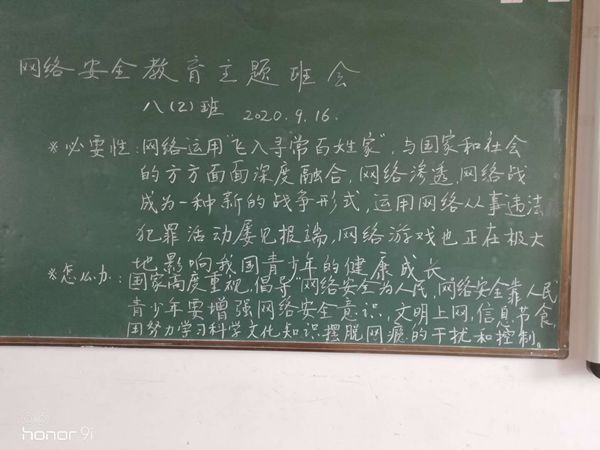 网络安全教育主题班会
八(2)班 2020.9.16.
*必要性:网络运用"飞入寻常百姓家",与国家和社会
的方方面面深度融合,网络渗透,网络战
成为一种新的战争形式,运用网络从事违法
犯罪活动屡见报端,网络游戏也正在极大
地影响我国青少年的健康成长
*怎么办:国家高度重视,倡导"网络安全为人民,网络安全靠人民
青少年要增强网络安全意识,文明上网,信息节食,
努力学习科学文化知识摆脱网瘾的干扰和控制。
honor 9i